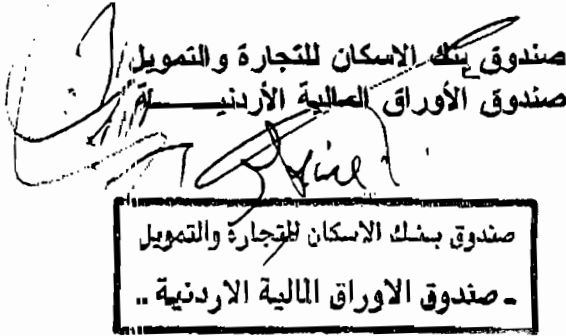 صندوق بنك الاسكان للتجارة والتمويل/
صندوق الأوراق المالية الأردنيـــــة/
صندوق بـنـك الاسكان للتجارة والتمويل
- صندوق الاوراق المالية الاردنية ..